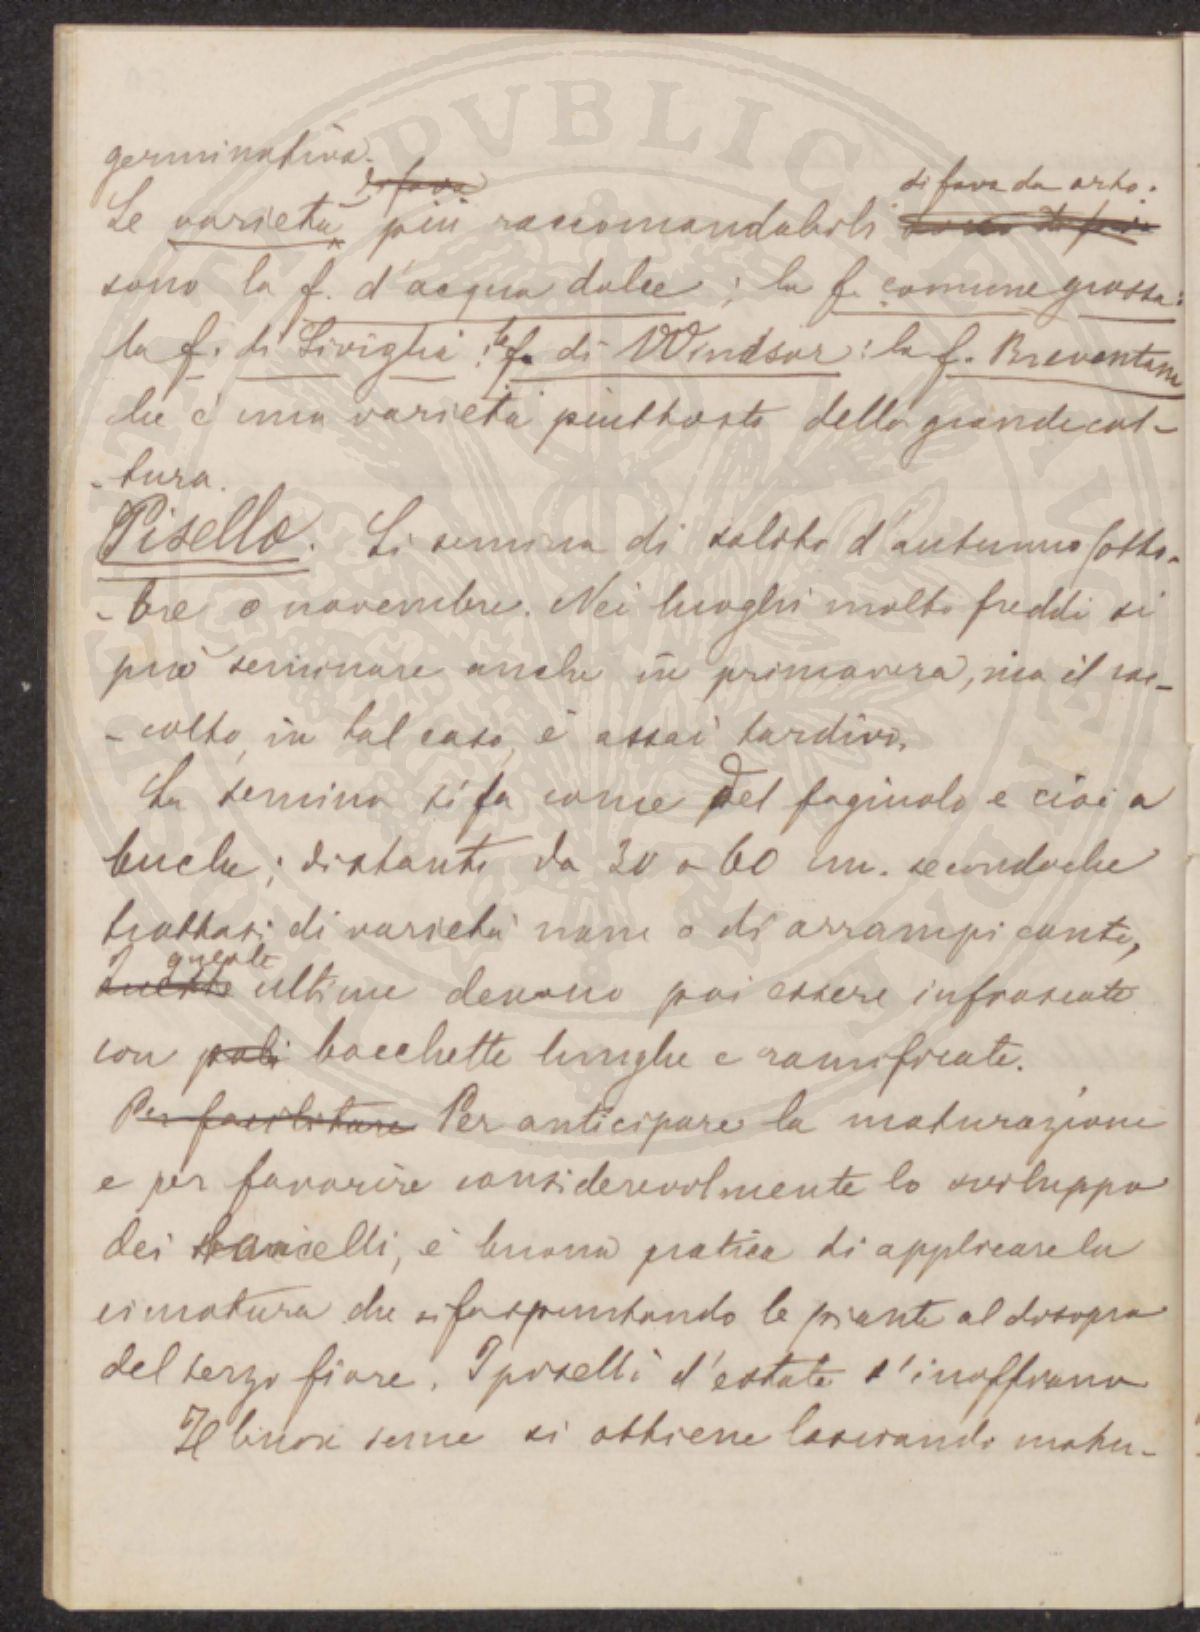 germinativa.
Le varietà di fava più raccomandabili di fava da orto.
sono la f. d'acqua dolce; la f. comune grossa:
la f. di Siviglia: la f. di Windsor: la f. Breventana
che è una varietà piuttosto della grande col-
-tura.
Pisello. Si semina di solito d'autunno (otto-
-bre o novembre. Nei luoghi molto freddi si
può seminare anche in primavera, ma il rac-
-colto, in tal caso, è assai tardivo.
La semina si fa come del fagiuolo e cioè a
buche; distanti da 30 a 60 cm. secondoche
trattasi di varietà nane o di arrampicanti,
queste queste ultime devono poi essere infrascate
con pali bacchette lunghe e ramificate.
Per facilitare Per anticipare la maturazione
e per favorire considerevolmente lo sviluppo
dei baccelli, è buona pratica di applicare la
cimatura che si fa spuntando le piante al disopra
del terzo fiore. I piselli d'estate s'inaffiano
Il buon seme si ottiene lasciando matu-